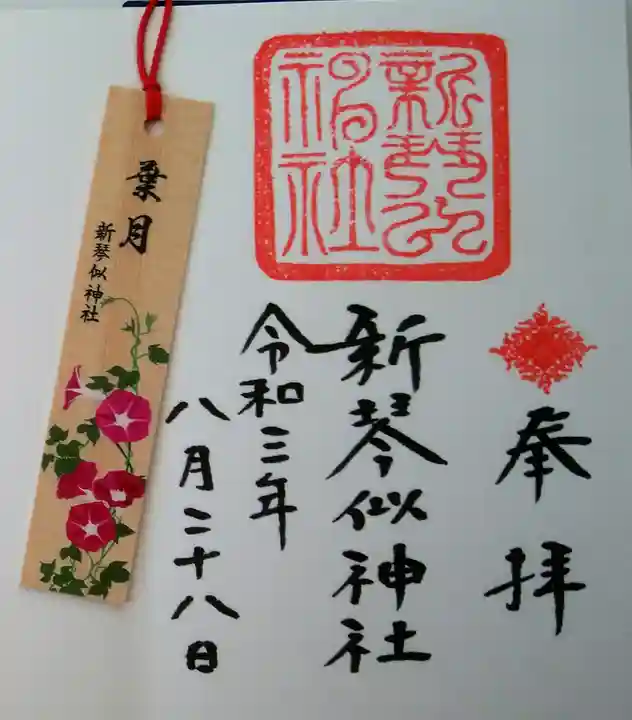 奉拝
新琴似神社
令和三年
八月二十八日
新琴似神社
葉月
新琴似神社